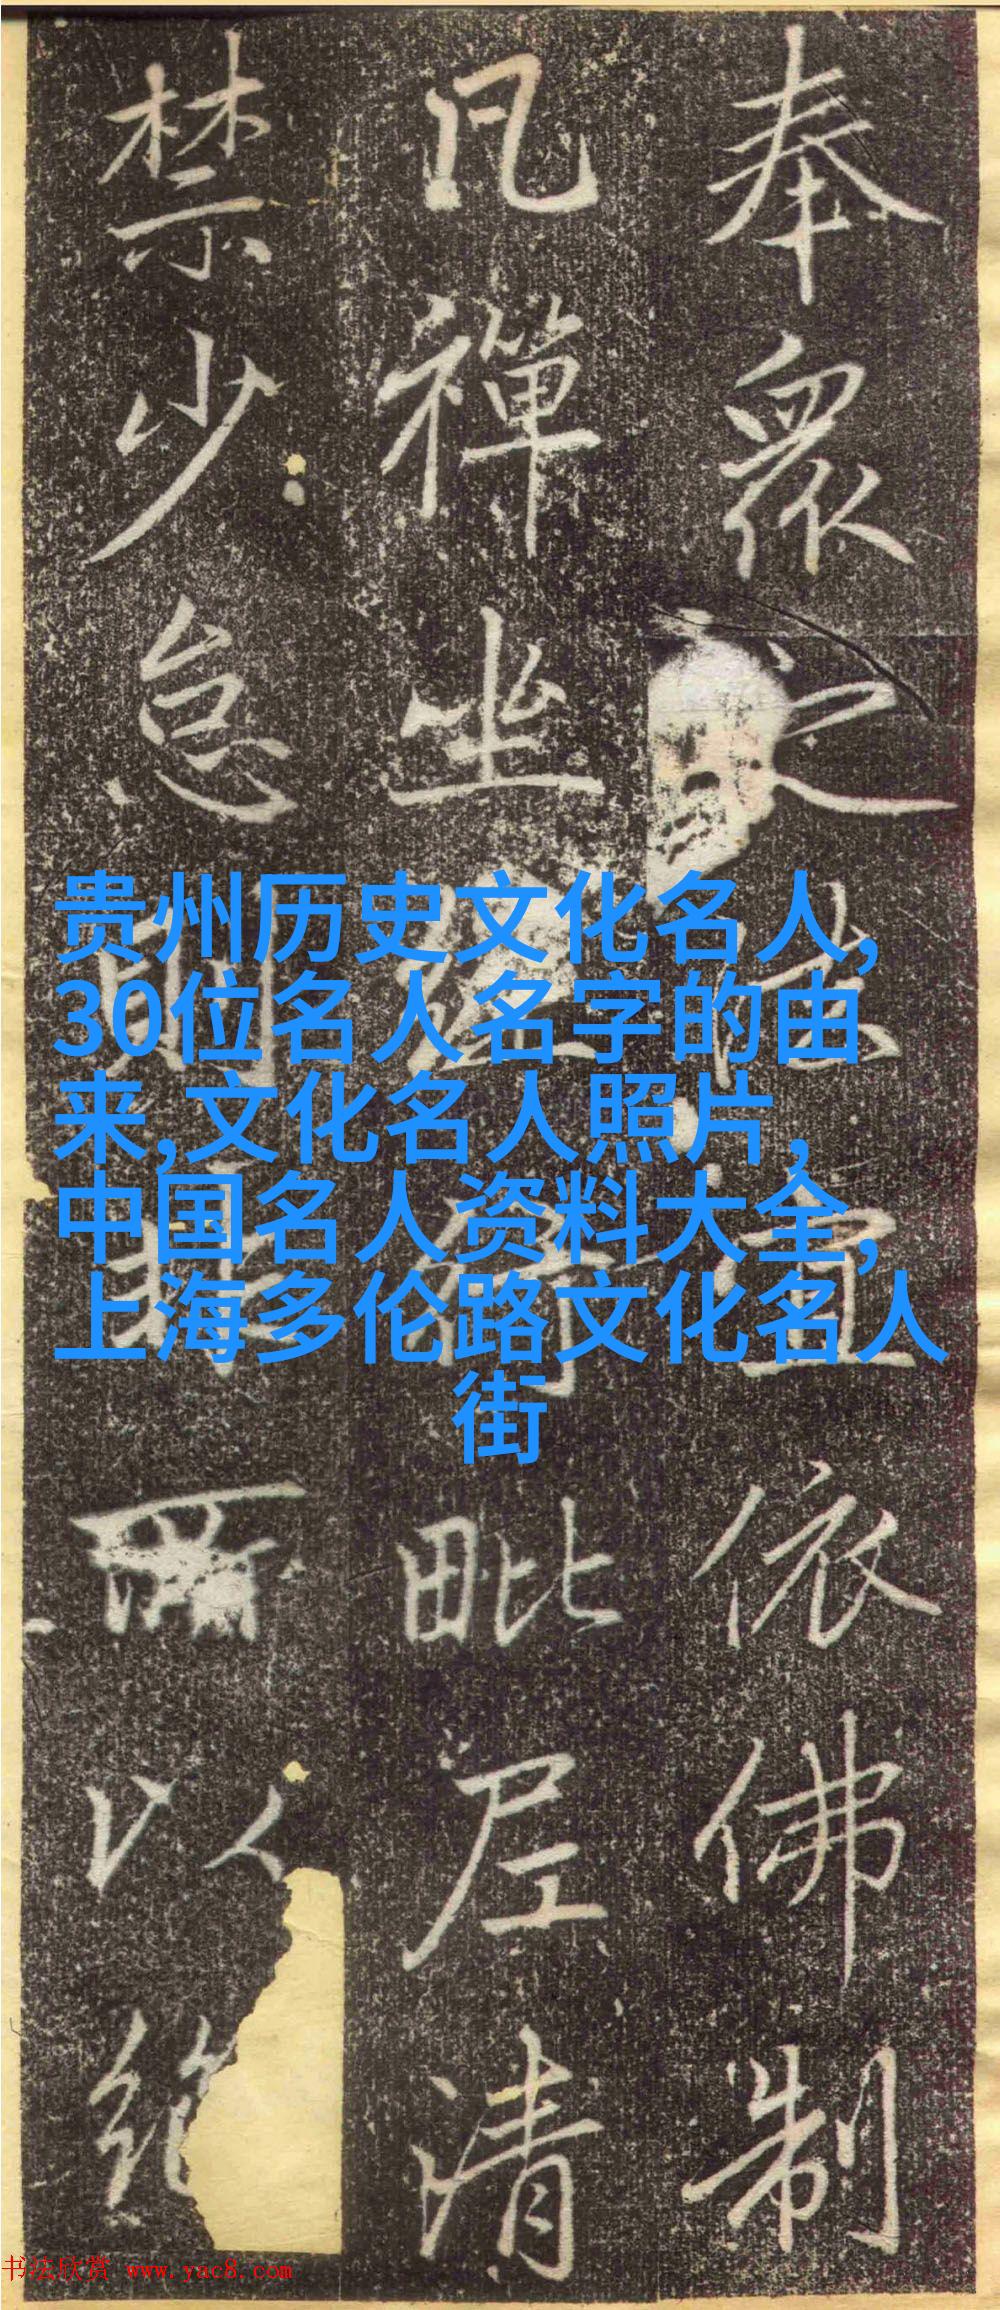 奉眾之法宜依佛制
凡禪坐經行毗尼清
禁少怠則所以絕
贵州历史文化名人,
30位名人名字的由
来,文化名人照片,
中国名人资料大全,
上海多伦路文化名人
街
书法欣赏 www.yac8.com